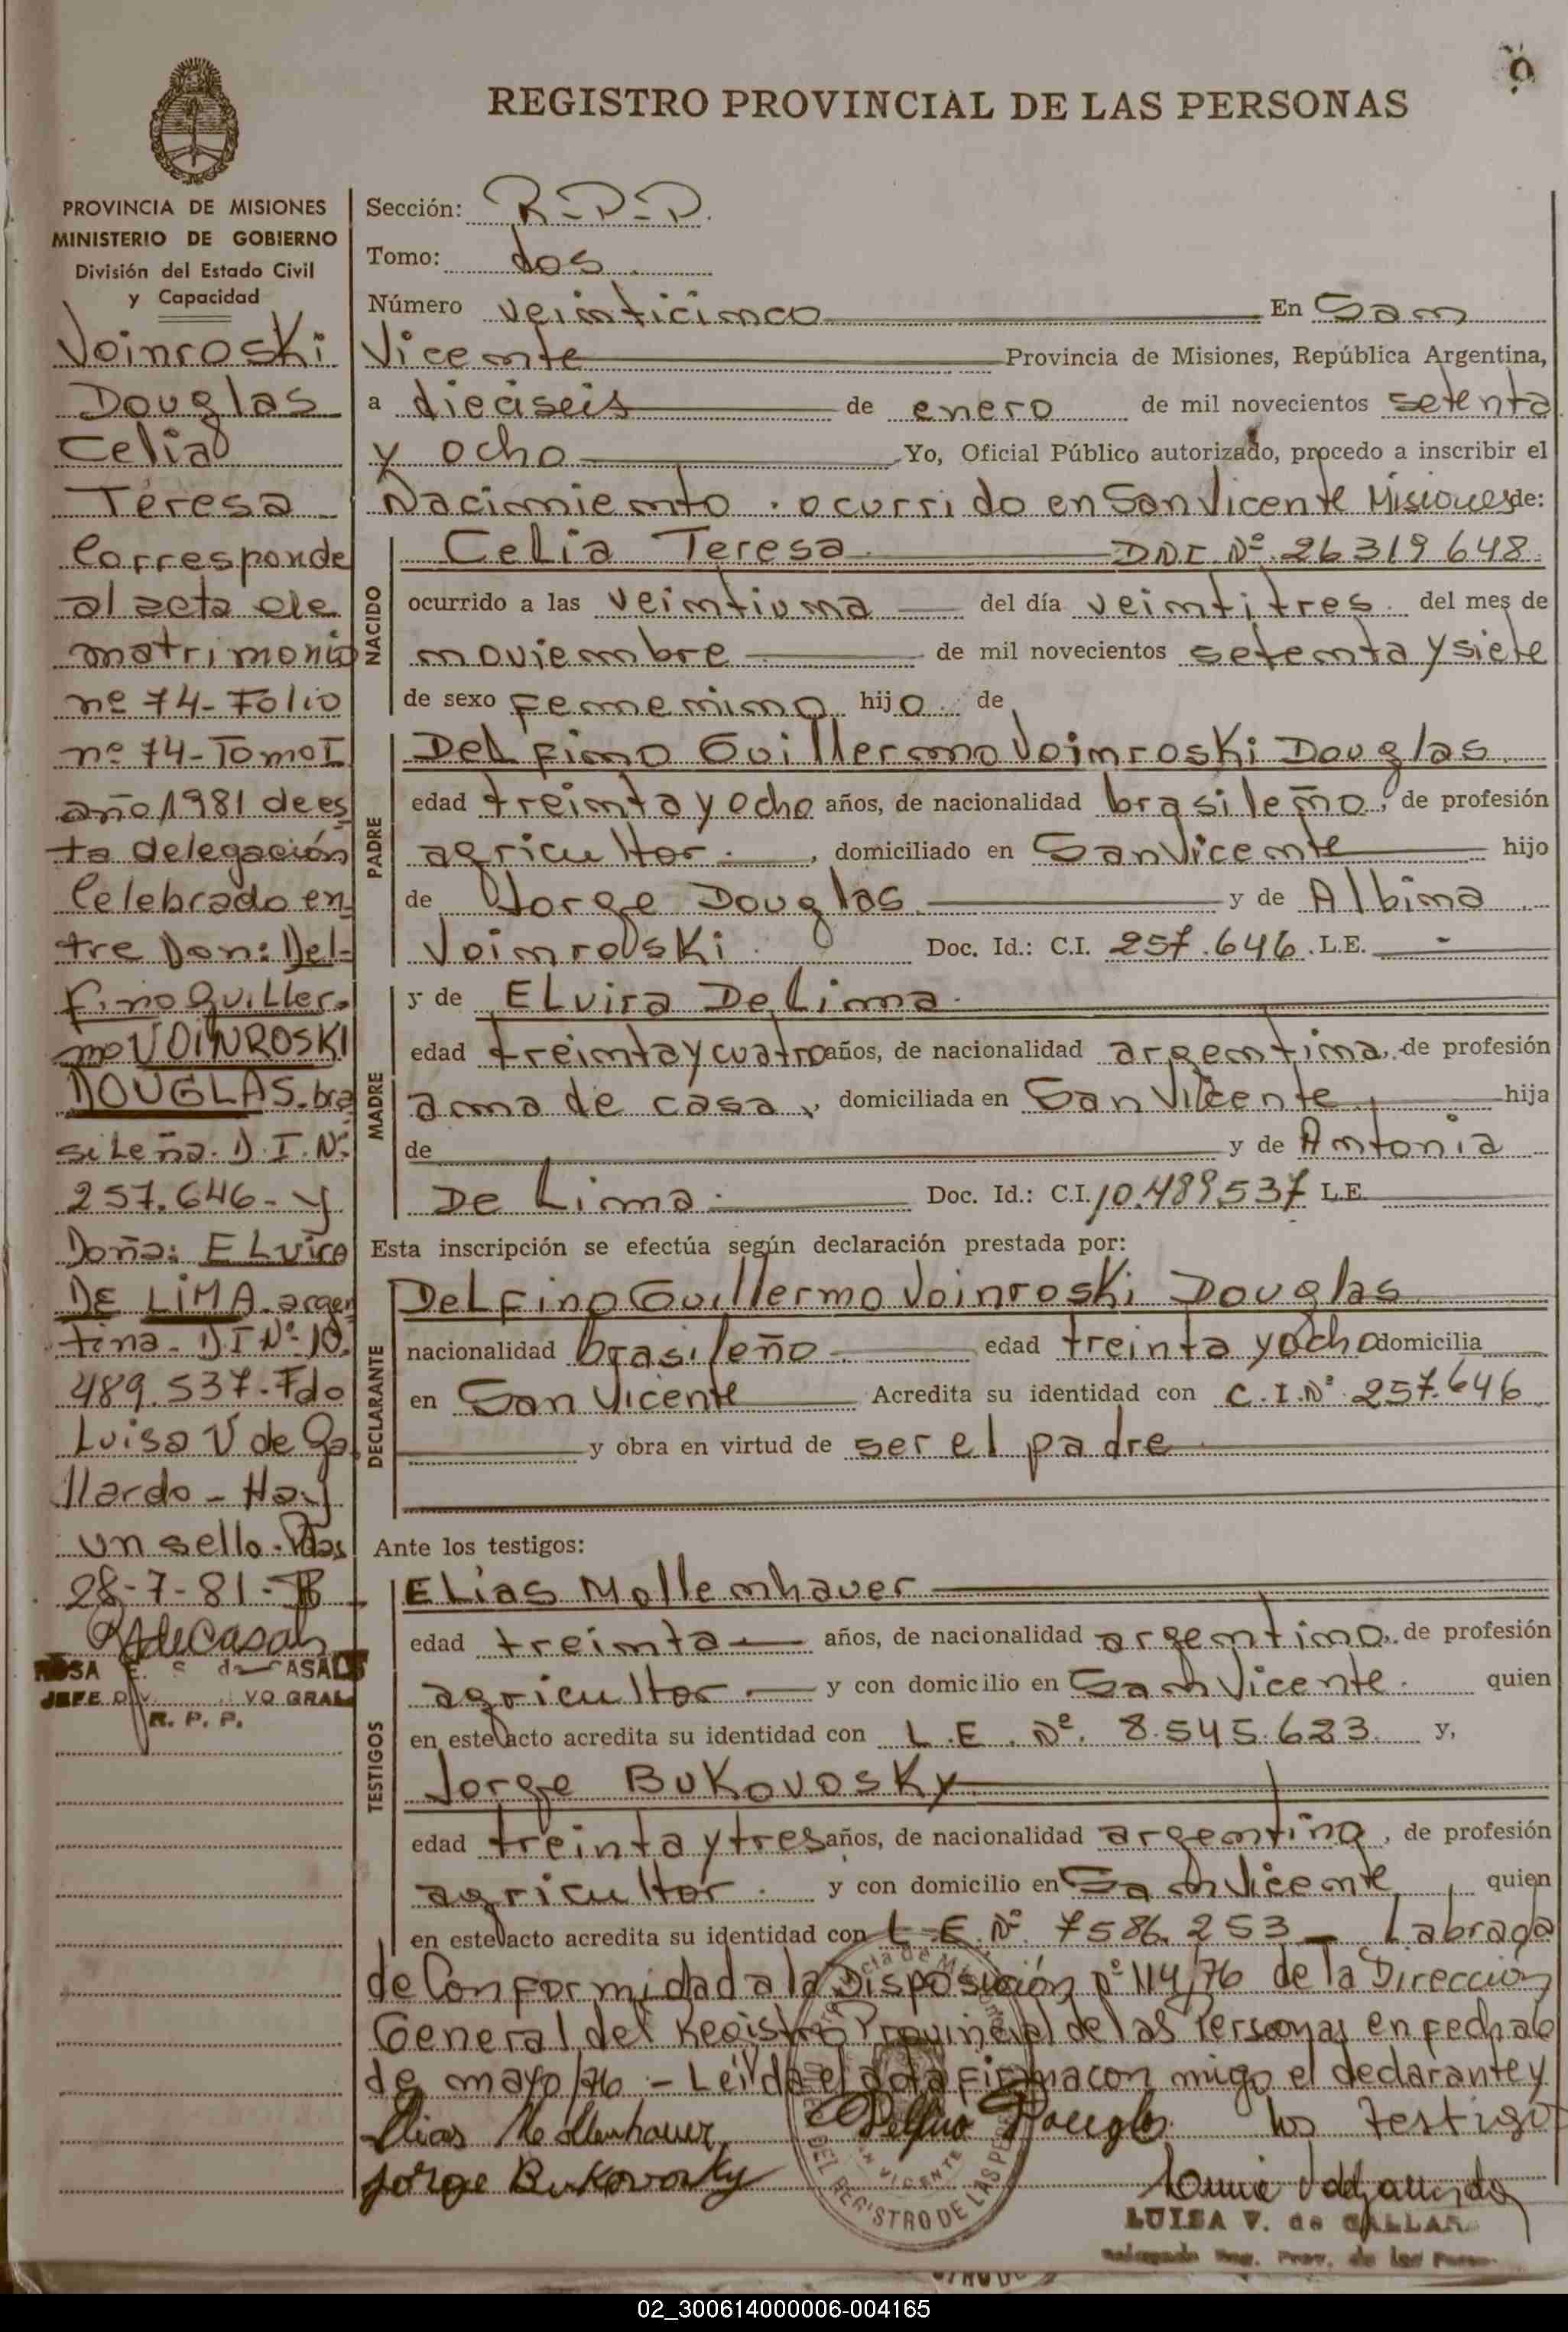 REGISTRO PROVINCIAL DE LAS PERSONAS
PROVINCIA DE MISIONES
MINISTERIO DE GOBIERNO
División del Estado Civil
y Capacidad
Voinroski
Douglas
Celia
Teresa
Corresponde
al acta de
matrimonio
nº 74-Folio
nº 74-Tomo I
año 1981 de es
ta delegación
Celebrado en
tre Don: Del-
fino Guiller-
mo VOINROSKI
DOUGLAS. bra
sileña. D.I.Nº
257.646- y
Doña: ELvira
DE LIMA. argen
tina. D.I Nº 10.
489.537-Fdo
Luisa V de Ga
llardo - Hay
un sello-Pdas
28-7-81-
JEFE
R. P. P.
Sección: R-P-P.
Tomo: dos
Número veinticinco En San
Vicente Provincia de Misiones, República Argentina,
a dieciseis de enero de mil novecientos setenta
y ocho Yo, Oficial Público autorizado, procedo a inscribir el
Nacimiento . ocurrido en San Vicente Misiones de:
NACIDO
Celia Teresa DNI Nº 26319648
ocurrido a las veintiuna del día veintitres del mes de
noviembre de mil novecientos setenta y siete
de sexo femenino hijo de
PADRE
Delfino Guillermo Voinroski Douglas
edad treinta y ocho años, de nacionalidad brasileño, de profesión
agricultor , domiciliado en San Vicente hijo
de Jorge Douglas y de Albina
Voinroski Doc. Id.: C.I. 257.646. L.E. -
MADRE
y de ELvira De Lima
edad treinta y cuatro años, de nacionalidad argentina, de profesión
ama de casa, domiciliada en San Vicente hija
de y de Antonia
De Lima Doc. Id.: C.I. 10.489.537 L.E.
Esta inscripción se efectúa según declaración prestada por:
DECLARANTE
Delfino Guillermo Voinroski Douglas
nacionalidad brasileño edad treinta y ocho domicilia
en San Vicente Acredita su identidad con C.I.Nº 257.646
y obra en virtud de ser el padre
Ante los testigos:
TESTIGOS
ELias Mollenhauer
edad treinta años, de nacionalidad argentino, de profesión
agricultor y con domicilio en San Vicente quien
en este acto acredita su identidad con L.E. Nº. 8.545.623 y,
Jorge Bukovosky
edad treinta y tres años, de nacionalidad argentino, de profesión
agricultor y con domicilio en San Vicente quien
en este acto acredita su identidad con L.E.Nº 7586.253 - Labrada
de Conformidad a la Disposición nº 114/76 de la Dirección
General del Registro Provincial de las Personas en fecha 6
de mayo/76 - Leida el acta firma con migo el declarante y
Elias Mollenhauer Delfino Douglas los testigos
Jorge Bukovosky
LUISA V. de GALLAR
DEL REGISTRO DE LAS PE
02_300614000006-004165